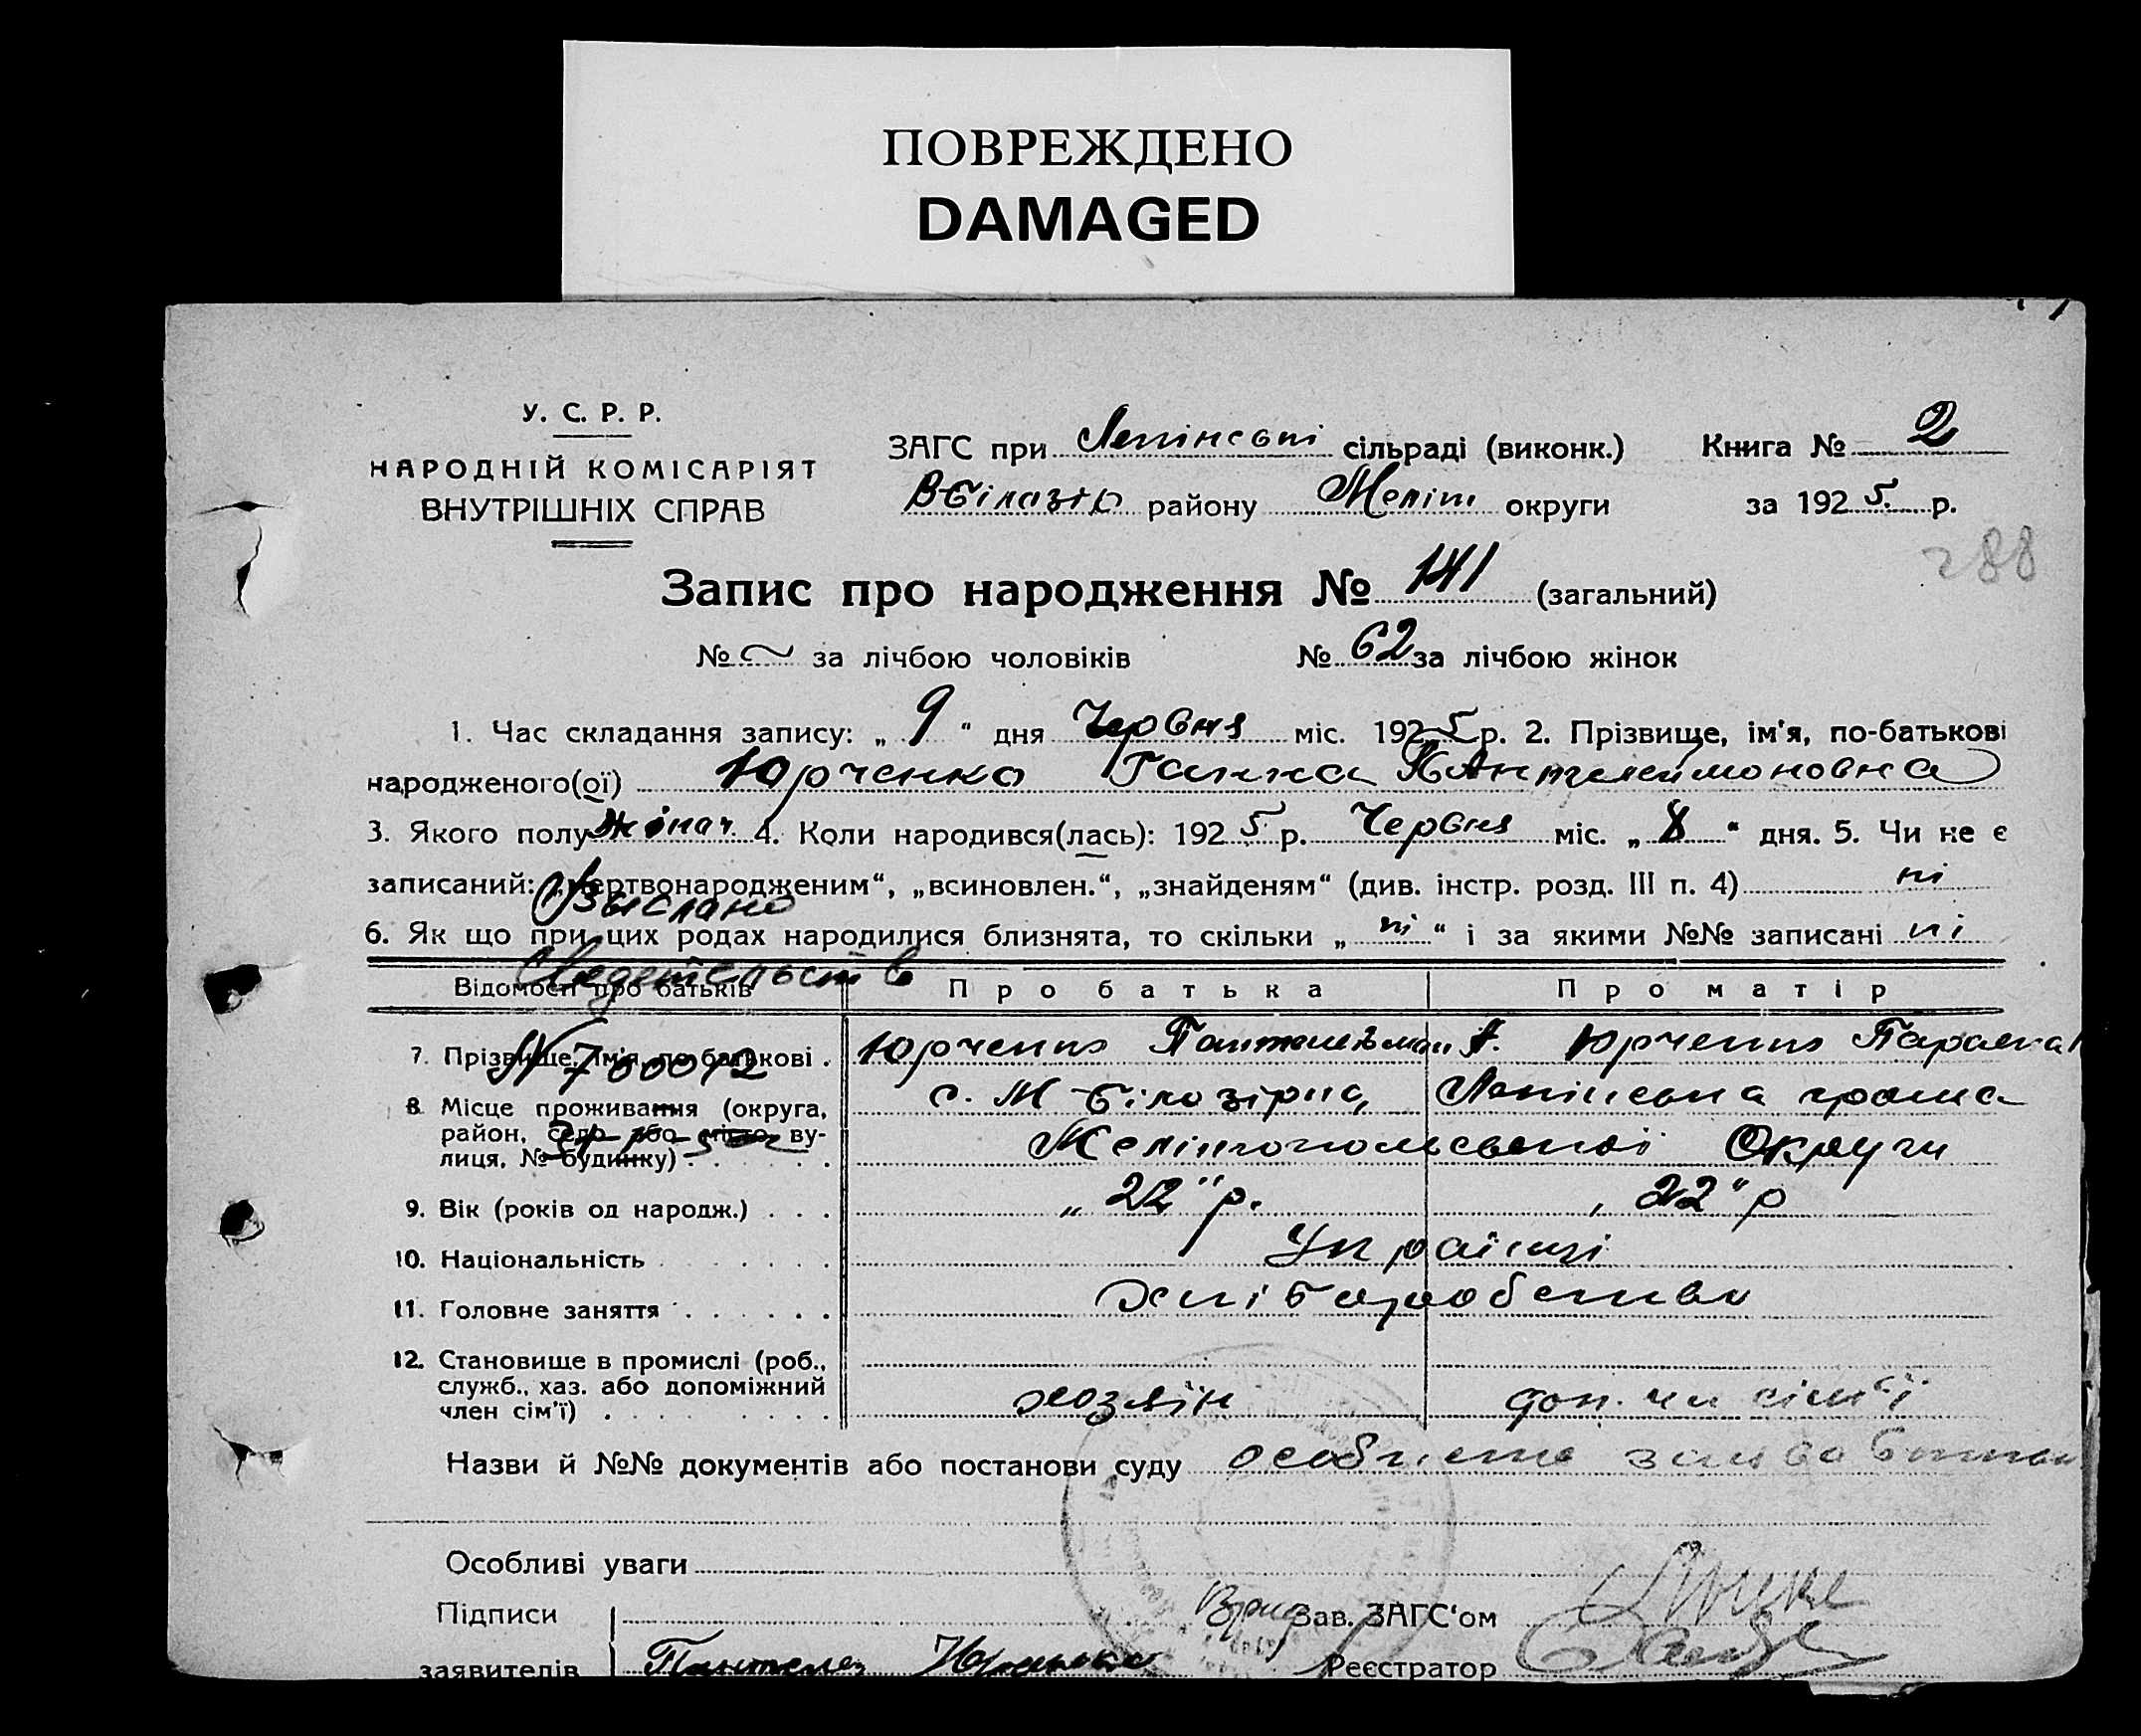 ПОВРЕЖДЕНО
DAMAGED
У. С. Р. Р.
НАРОДНІЙ КОМІСАРІЯТ
ВНУТРІШНІХ СПРАВ
ЗАГС при Ленінські сільраді (виконк.) Книга № 2
району Меліт округи за 1925 р.
288
Запис про народження № 141 (загальний)
№ за лічбою чоловіків № 62 за лічбою жінок
1. Час складання запису: „ 9 “ дня Червня міс. 1925 р. 2. Прізвище, ім'я, по-батькові
народженого(ої) Юрченко Ганна Пантелеймоновна
3. Якого полу жіноч. 4. Коли народився(лась): 1925 р. Червня міс. „ 8 “ дня. 5. Чи не є
записаний: „мертвонародженим“, „всиновлен.“, „знайденям“ (див. інстр. розд. III п. 4) ні
Выслано
6. Як що при цих родах народилися близнята, то скільки „ ні “ і за якими №№ записані ні
Відомості про батьків Про батька Про матір
7. Прізвище, ім'я, по-батькові . Юрченко Пантелеймон А. Юрченко
8. Місце проживання (округа, с. М Білозірка, Ленінська грома
район, село або місто, ву- Мелітопольської Округи
лиця, № будинку) . . . . .
9. Вік (років од народж.) . . . „ 22 “ р. „ 22 “ р
10. Національність . . . . . . . Українці
11. Головне заняття . . . . . . Хліборобство
12. Становище в промислі (роб.,
служб., хаз. або допоміжний хозяїн доп. чл сім'ї
член сім'ї) . . . . . . . . .
Назви й №№ документів або постанови суду особисте
Особливі уваги
Підписи Зав. ЗАГС‘ом
заявителів Реєстратор